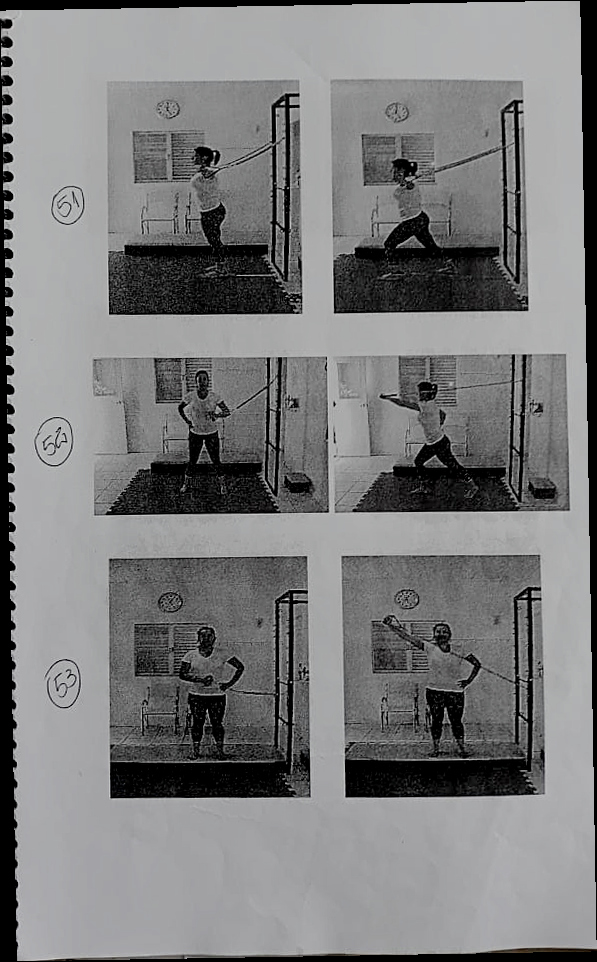 51
52
53